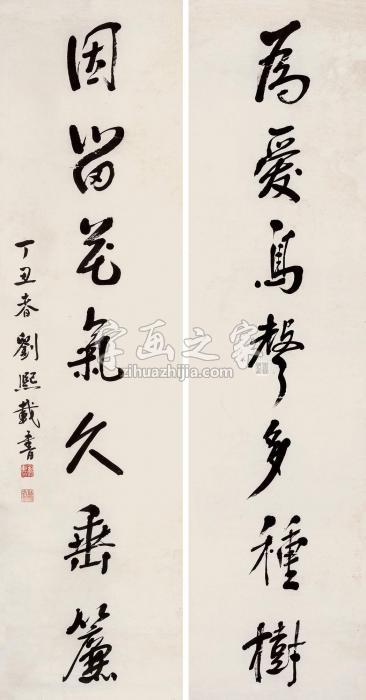 為愛鳥聲多種樹
因留花氣久垂簾
丁丑春劉熙載書
字画之家
zihuazhijia.com